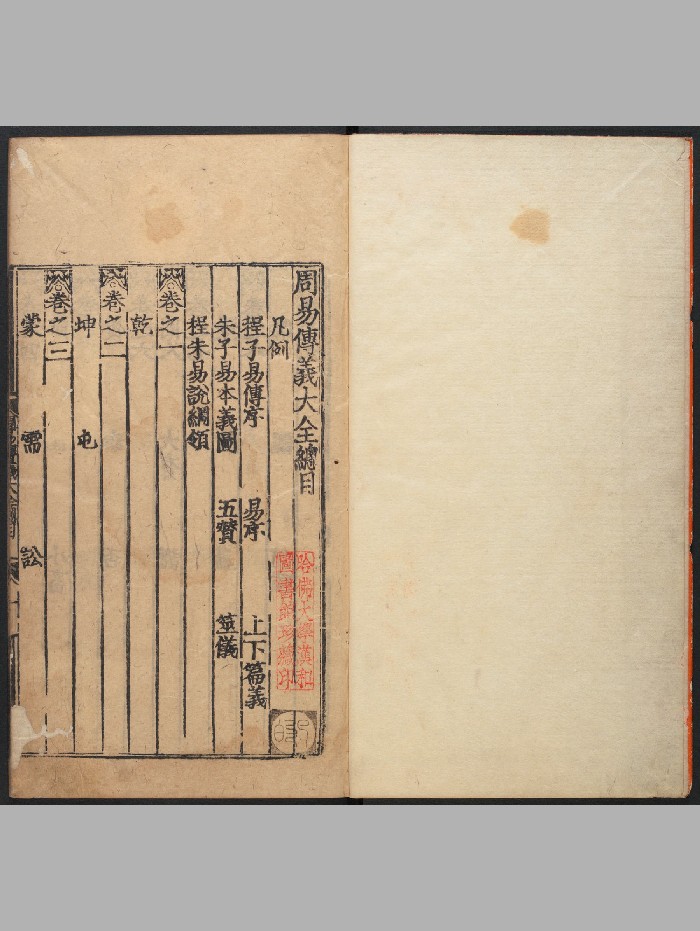 周易傳義大全總目
凡例
程子易傳序 易序 上下篇義
朱子易本義圖 五贊 筮儀
程朱易說綱領
卷之一
乾
卷之二
坤 屯
卷之三
蒙 需 訟
哈佛大學漢和
圖書館珍藏印